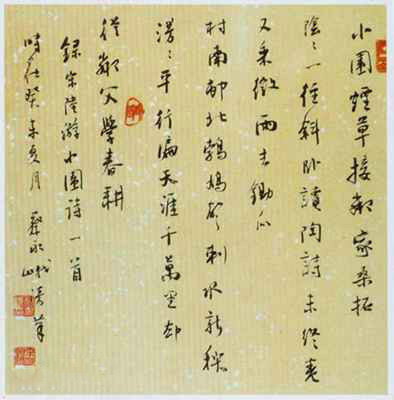 小園煙草接鄰家桑柘
陰〻一徑斜卧讀陶詩未終卷
又乘微雨去鋤瓜
村南邨北鵓鴣聲刺水新秧
漫〻平行遍天涯千萬里却
從鄰父學春耕
錄宋陸游小園詩一首
時在癸未月